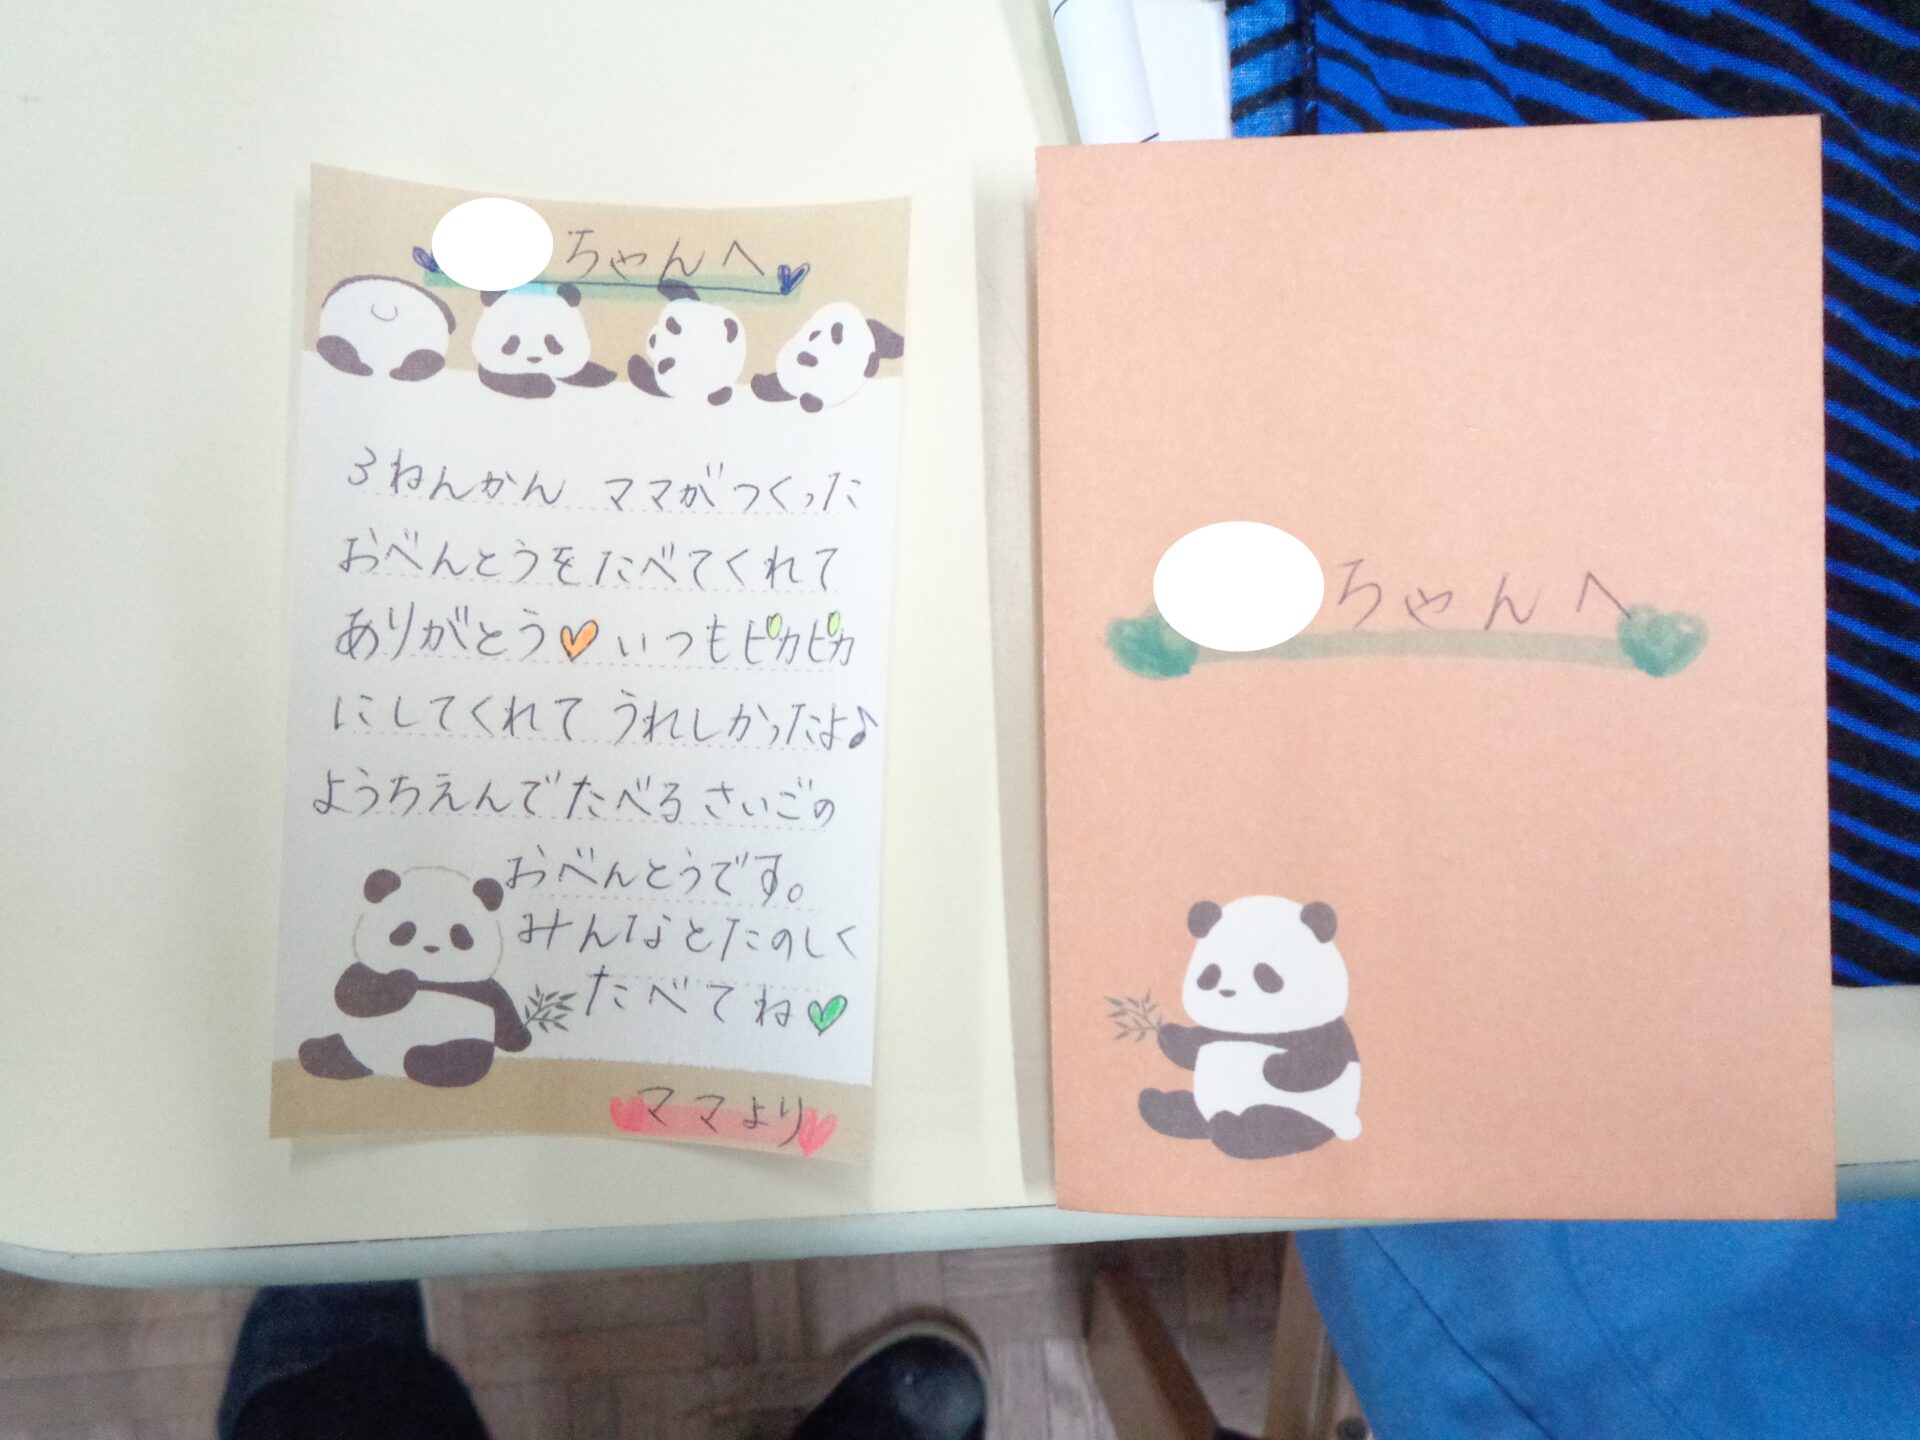 ちゃんへ
3ねんかん ママがつくった
おべんとうをたべてくれて
ありがとう♡いつもピカピカ
にしてくれて うれしかったよ♪
ようちえんでたべるさいごの
おべんとうです。
みんなとたのしく
たべてね♡
ママより
ちゃんへ